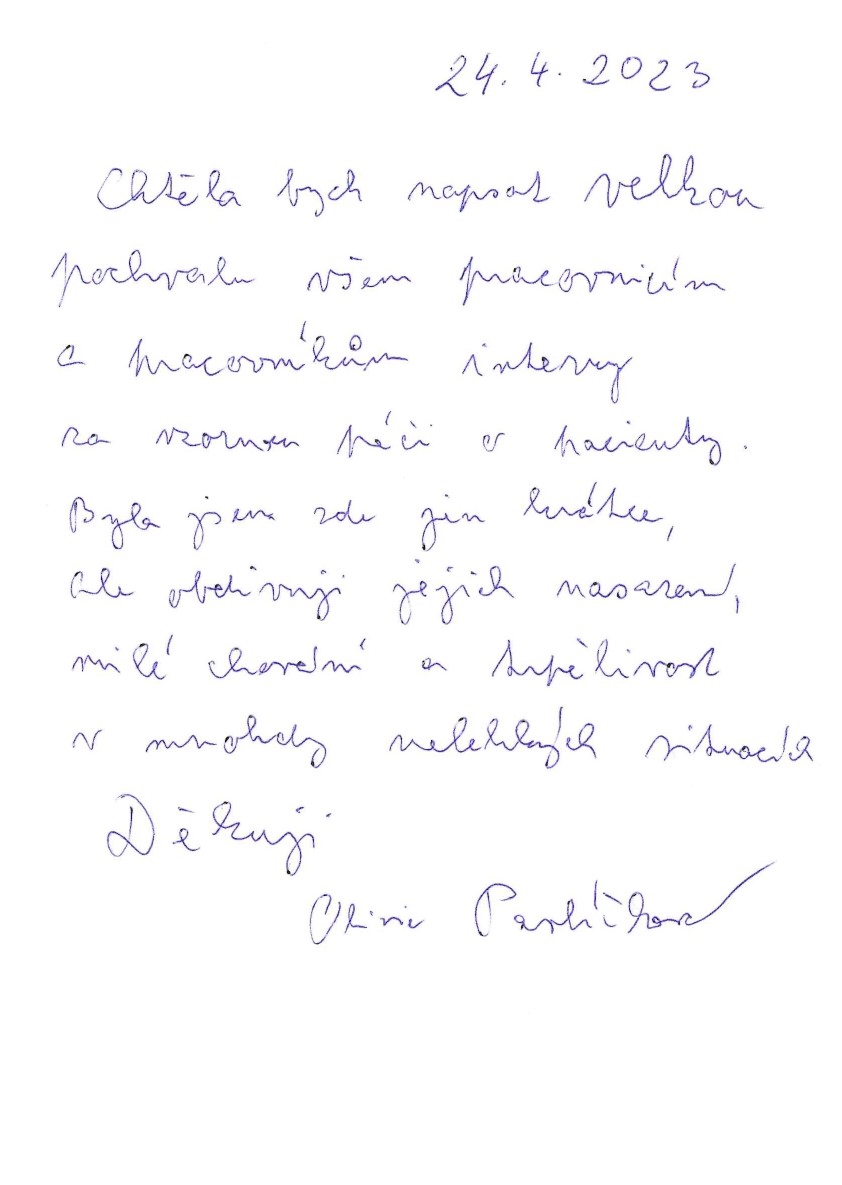 24. 4. 2023
Chtěla bych napsat velkou
pochvalu všem pracovnicím
a pracovníkům interny
za vzornou péči o pacienty.
Byla jsem zde jen krátce,
ale obdivuji jejich nasazení,
milé chování a trpělivost
v mnohdy nelehkých situacích
Děkuji
Olivie Pavlíčková